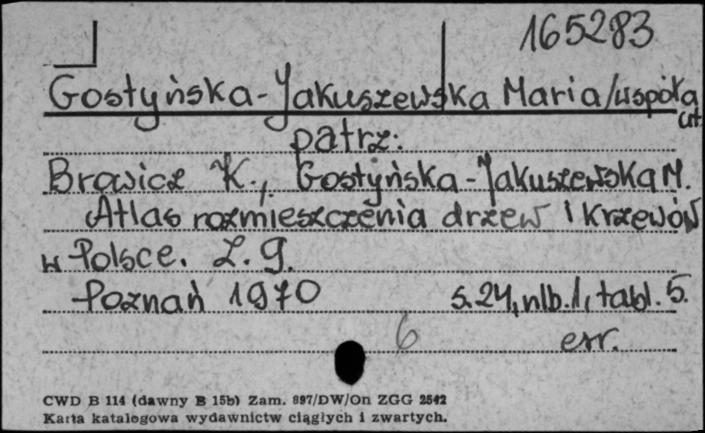 165283
Gostyńska-Jakuszewska Maria /współaut.
patrz:
Browicz K., Gostyńska-Jakuszewska M.
Atlas rozmieszczenia drzew i krzewów
w Polsce. Z. 9.
Poznań 1970 s. 24, nlb. 1, tabl. 5.
6 err.
CWD B 114 (dawny B 15b) Zam. 897/DW/On ZGG 2542
Karta katalogowa wydawnictw ciągłych i zwartych.